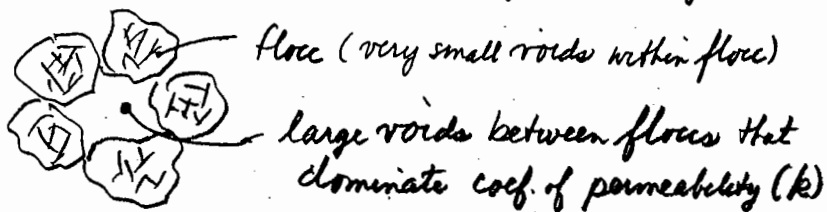 flocc (very small voids within flocc)
large voids between floccs that
dominate coef. of permeability (k)